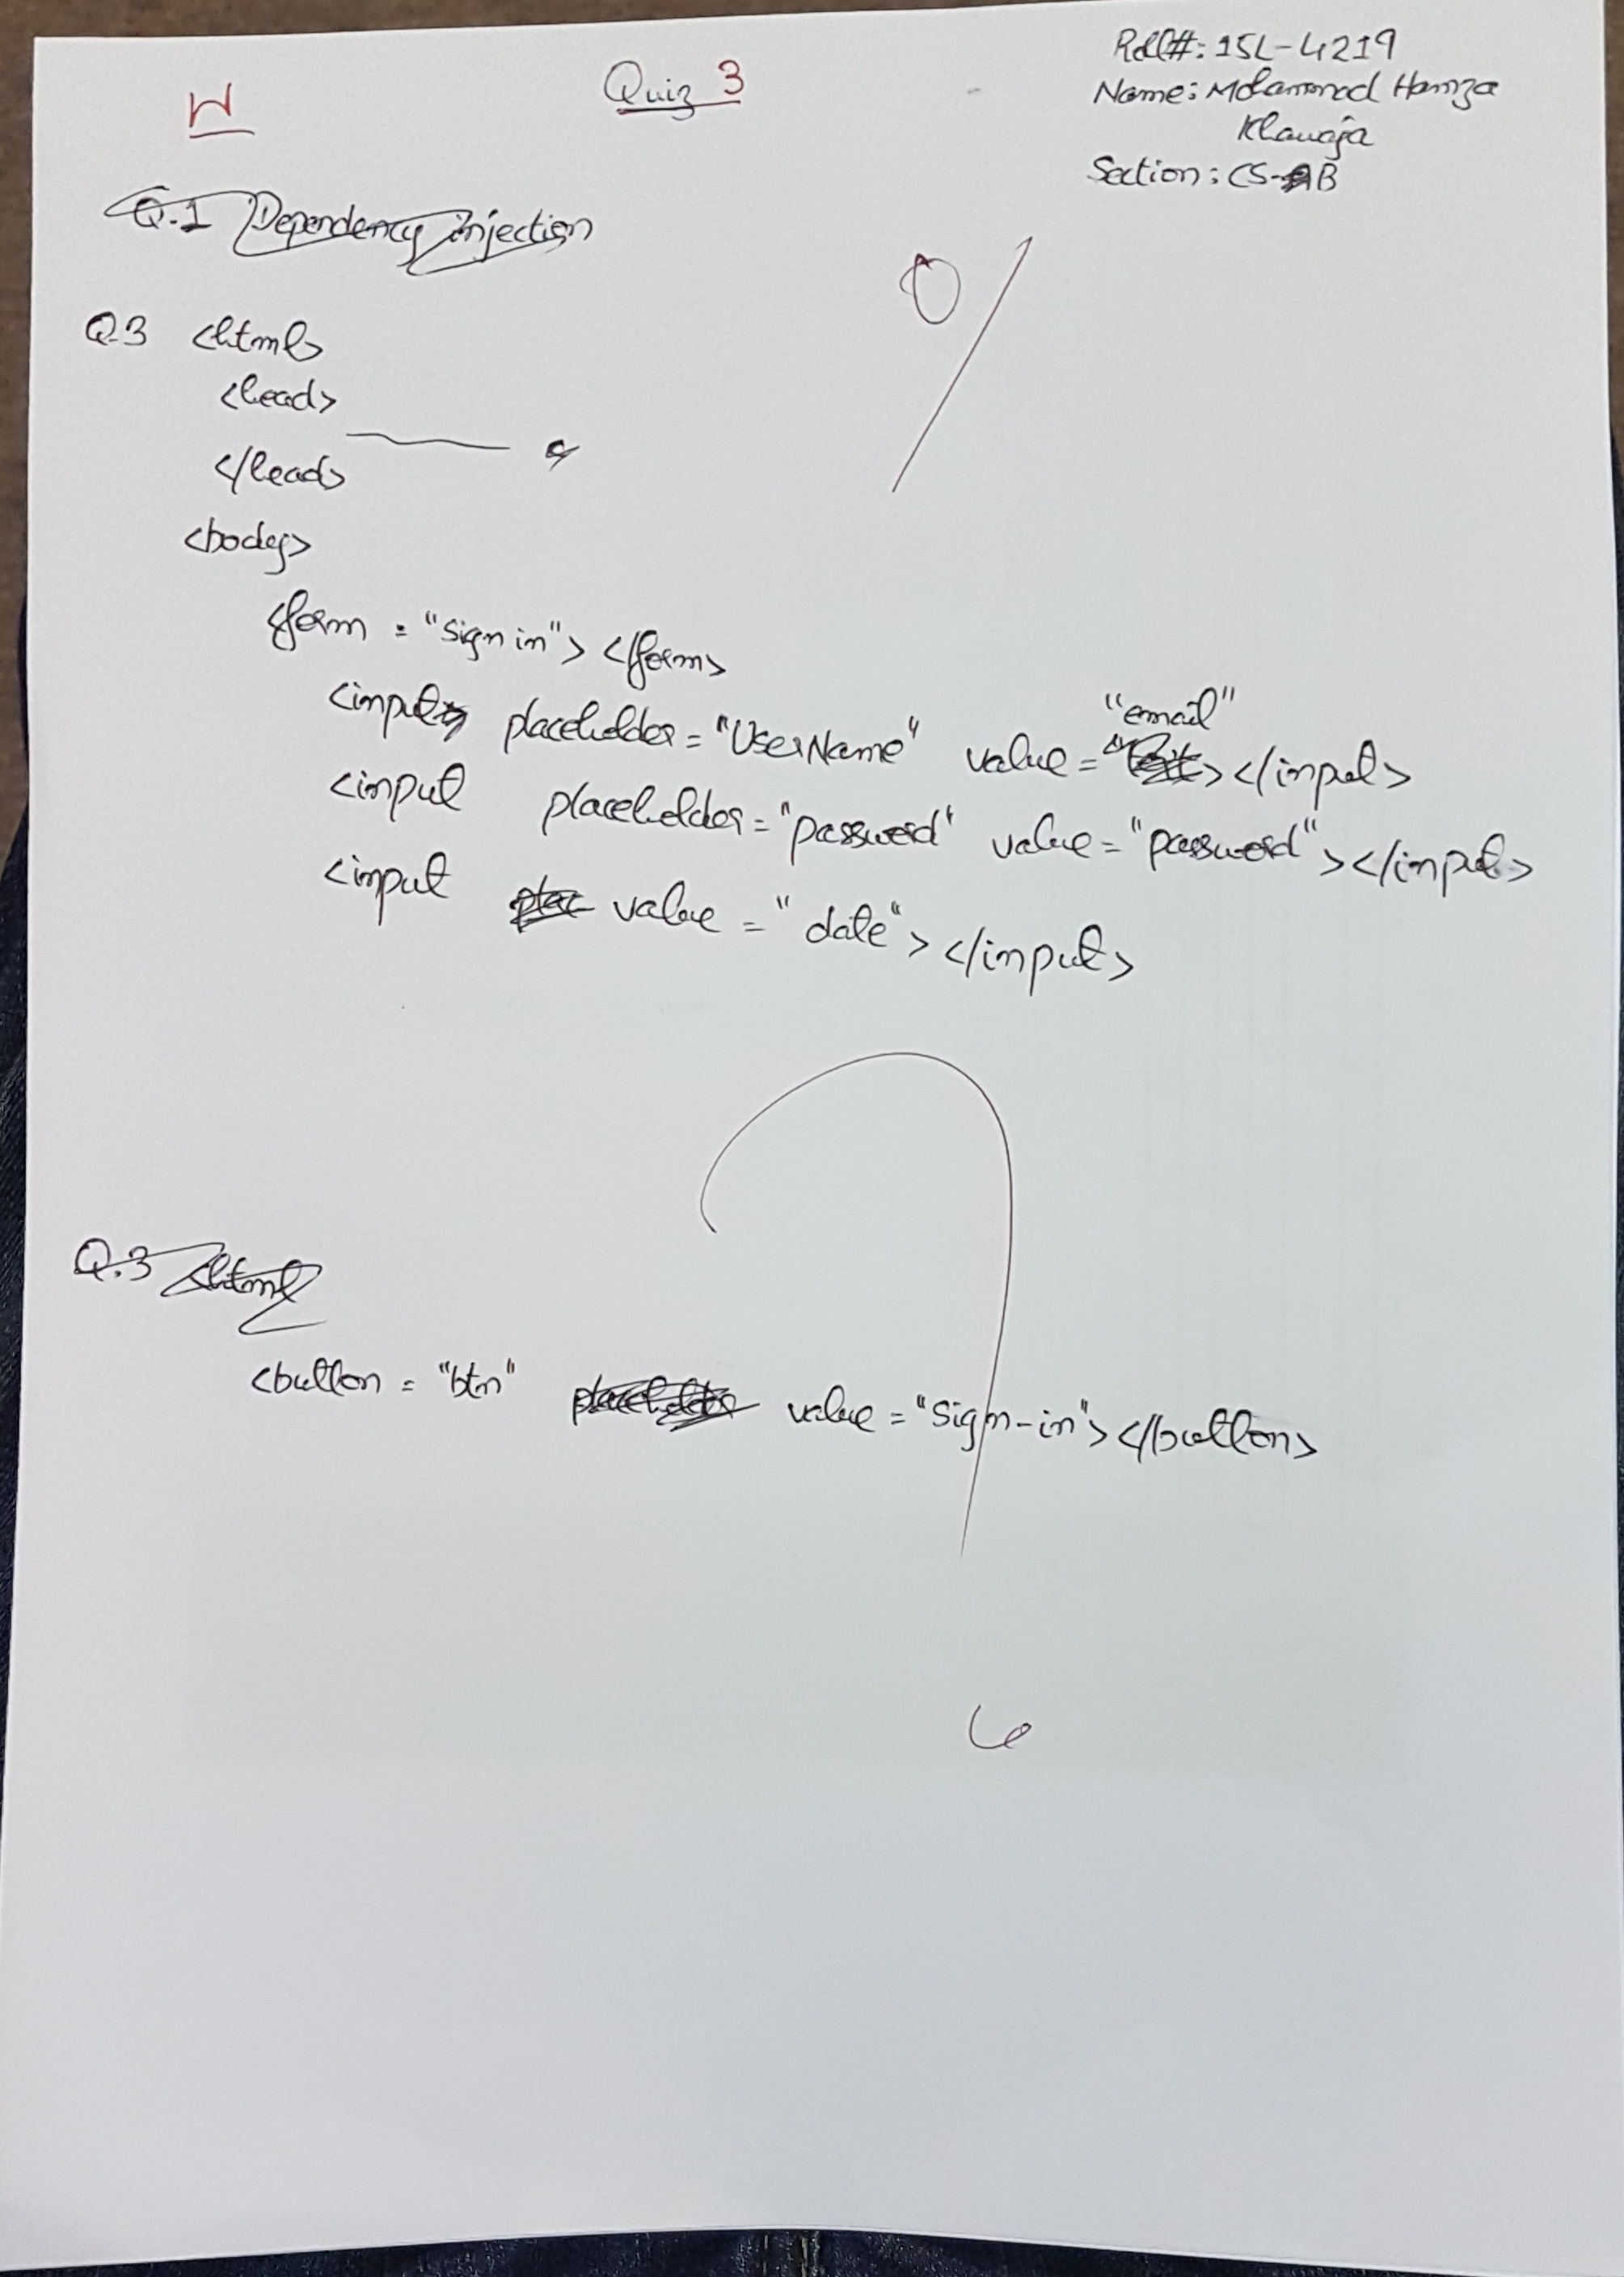 W
Quiz 3
Roll#: 15L-4219
Name: Mohammad Hamza
Khawaja
Section: CS-B
Q.1 Dependency Injection
0/
Q.3 <html>
<head>
</head>
<body>
<form = "Sign in"> </form>
<input placeholder = "UserName" value = "email"></input>
<input placeholder = "password" value = "password"></input>
<input value = "date"></input>
Q.3 <html
<button = "btn" value = "Sign-in"></button>